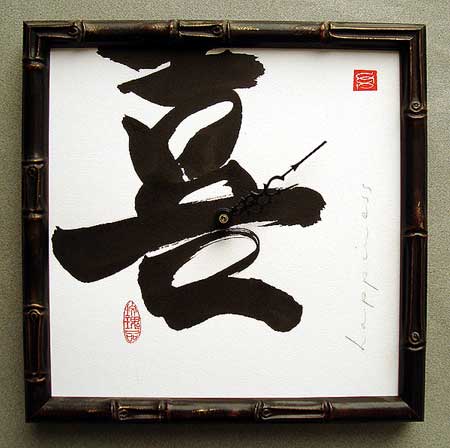 喜
happiness